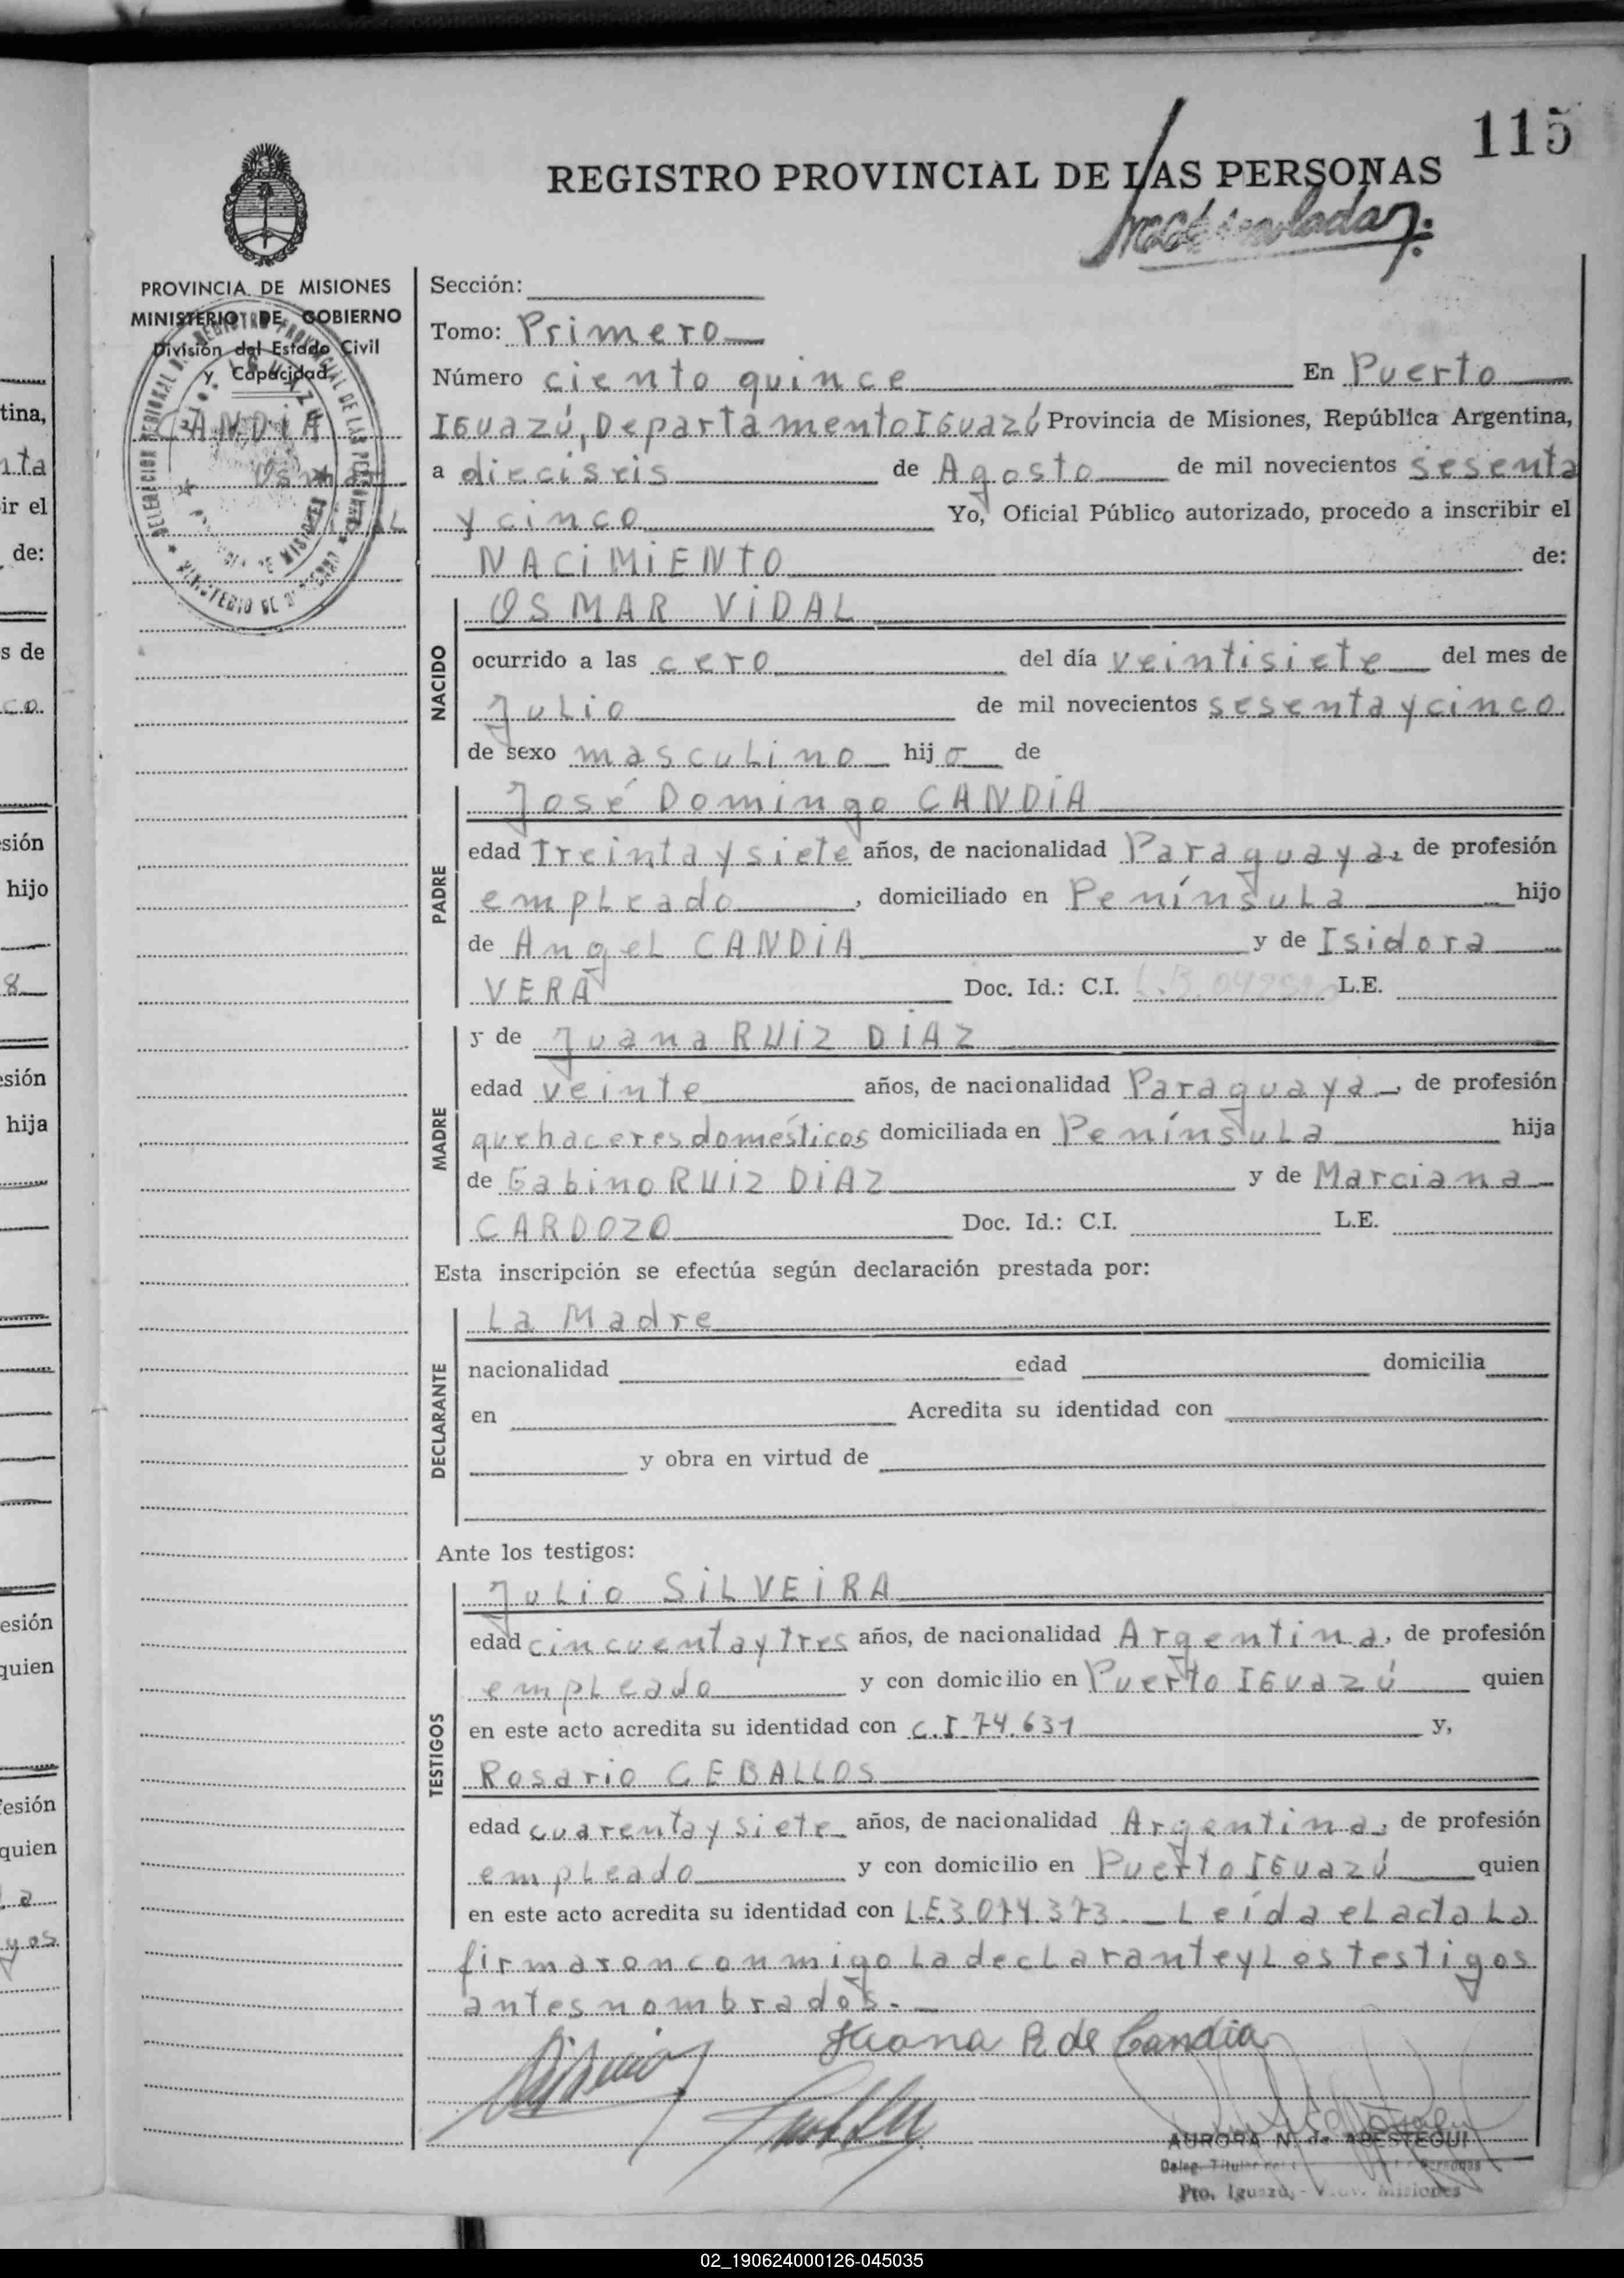 115
REGISTRO PROVINCIAL DE LAS PERSONAS
PROVINCIA DE MISIONES
MINISTERIO DE GOBIERNO
División del Estado Civil
y Capacidad
CANDiA
Osmar
Sección:
Tomo: Primero
Número ciento quince En Puerto
IGuazú, Departamento IGuazú Provincia de Misiones, República Argentina,
a dieciseis de Agosto de mil novecientos sesenta
y cinco Yo, Oficial Público autorizado, procedo a inscribir el
NACiMiENTO de:
NACIDO
OSMAR ViDAL
ocurrido a las cero del día veintisiete del mes de
Julio de mil novecientos sesenta y cinco
de sexo masculino hijo de
PADRE
José Domingo CANDiA
edad Treinta y siete años, de nacionalidad Paraguaya, de profesión
empleado, domiciliado en Península hijo
de Angel CANDiA y de Isidora
VERA Doc. Id.: C.I. L.E.
MADRE
y de Juana RUiZ DiAZ
edad veinte años, de nacionalidad Paraguaya, de profesión
quehaceres domésticos domiciliada en Península hija
de Gabino RUiZ DiAZ y de Marciana
CARDOZO Doc. Id.: C.I. L.E.
Esta inscripción se efectúa según declaración prestada por:
DECLARANTE
La Madre
nacionalidad edad domicilia
en Acredita su identidad con
y obra en virtud de
Ante los testigos:
TESTIGOS
Julio SiLVEiRA
edad cincuenta y Tres años, de nacionalidad Argentina, de profesión
empleado y con domicilio en Puerto IGuazú quien
en este acto acredita su identidad con C.I. 74.631 y,
Rosario CEBALLOS
edad cuarenta y siete años, de nacionalidad Argentina, de profesión
empleado y con domicilio en Puerto IGuazú quien
en este acto acredita su identidad con L.E.3.074.373. Leída el acta La
firmaron conmigo La declarante y Los testigos
antes nombrados.
Juana R de Candia
AURORA N. de
Pto. Iguazú, - Misiones
02_190624000126-045035